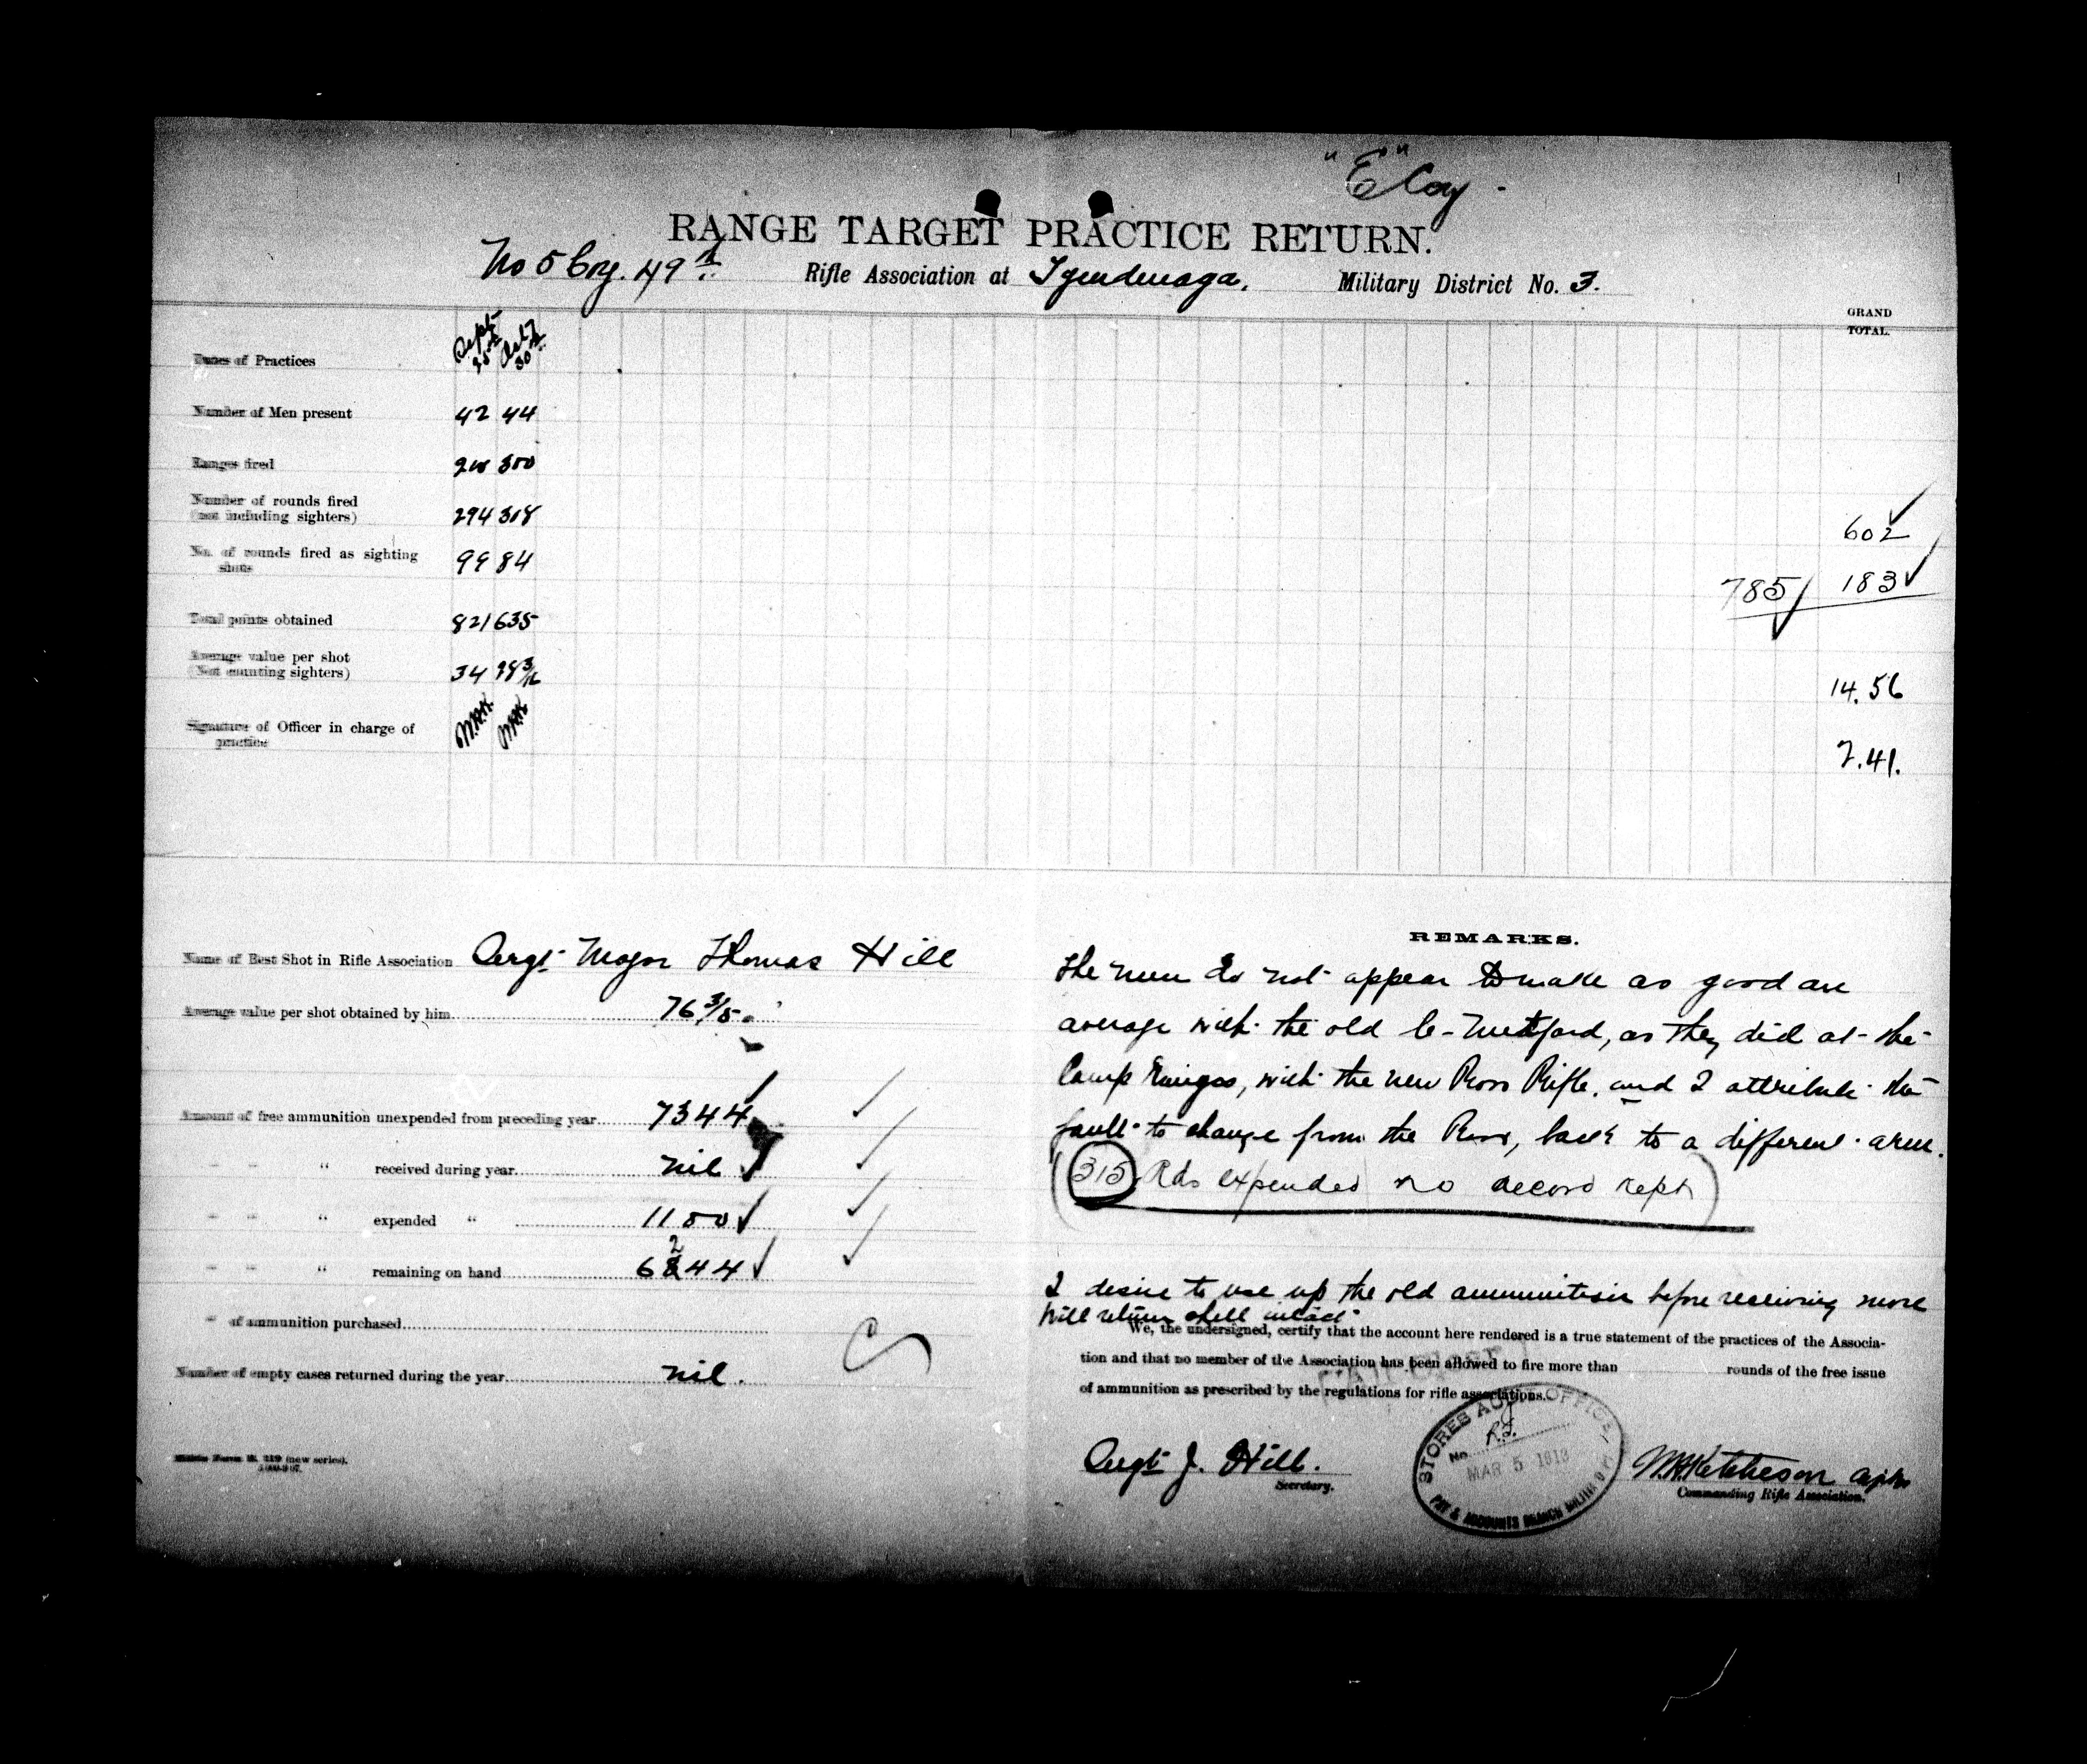 "E" Coy -
RANGE TARGET PRACTICE RETURN.
No 5 Coy. 49th Rifle Association at Tyendenaga, Military District No. 3.
GRAND
TOTAL.
Dates of Practices Sept 25th Oct 30th
Number of Men present 42 44
Ranges fired 200 300
Number of rounds fired
(not including sighters) 294 318 602
No. of rounds fired as sighting
shots 99 84 785 183
Total points obtained 821 635
Average value per shot
(Not counting sighters) 34 98 3/16 14.56
Signature of Officer in charge of
practice MRK MRK 2.41.
Name of Best Shot in Rifle Association Sergt Major Thomas Hill
Average value per shot obtained by him 76 3/5.
Amount of free ammunition unexpended from preceding year 7344
" " " received during year nil
" " " expended " 1100
" " " remaining on hand 6244
" of ammunition purchased
Number of empty cases returned during the year nil.
Militia Form B. 219 (new series).
REMARKS.
The men do not appear to make as good an
average with the old Le-Metford, as they did at the
Camp Ranges, with the new Ross Rifle. and I attribute the
fault to change from the Ross, back to a different arm.
(315 Rds expended no record kept)
I desire to use up the old ammunition before receiving more
Will return shell intact
We, the undersigned, certify that the account here rendered is a true statement of the practices of the Associa-
tion and that no member of the Association has been allowed to fire more than rounds of the free issue
of ammunition as prescribed by the regulations for rifle associations.
STORES AUDIT OFFICE
No. R.F.
MAR 5 1913
PAY & ACCOUNTS BRANCH MILITIA
Sergt J. Hill.
Secretary.
M.R. Ketcheson Capt
Commanding Rifle Association.